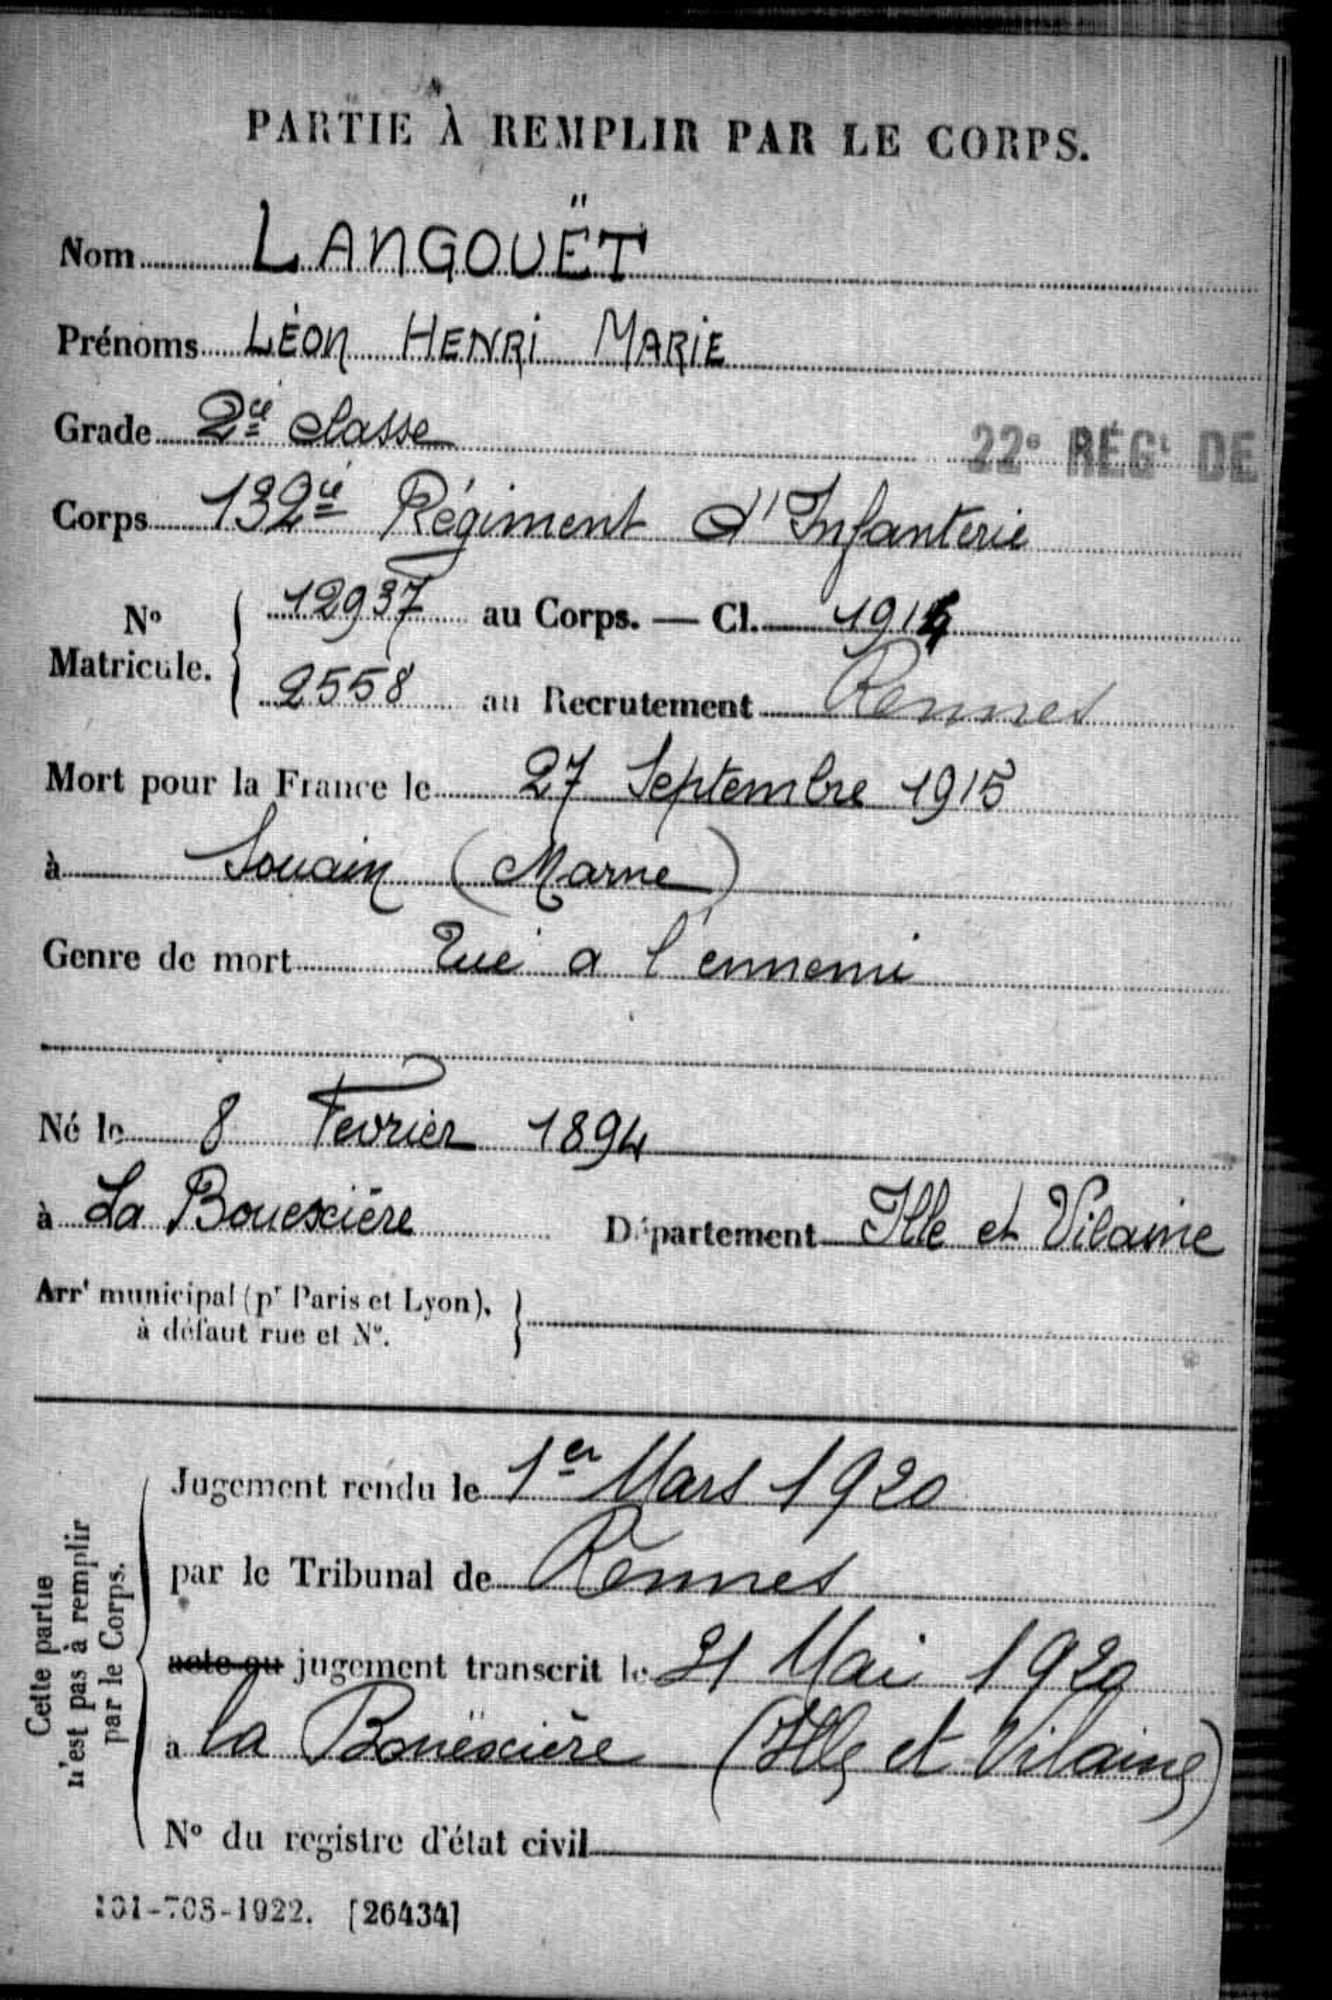 PARTIE À REMPLIR PAR LE CORPS.
Nom LANGOUËT
Prénoms LÉON HENRI MARIE
Grade 2è classe
22e RÉGt DE
Corps 132è Régiment d'Infanterie
No Matricule. { 12937 au Corps. — Cl. 1914
2558 au Recrutement Rennes
Mort pour la France le 27 Septembre 1915
à Souain (Marne)
Genre de mort Tué a l'ennemi
Né le 8 Fevrier 1894
à La Bouexière Département Ille et Vilaine
Arrt municipal (pr Paris et Lyon), }
à défaut rue et No.
Cette partie
n'est pas à remplir
par le Corps.
Jugement rendu le 1er Mars 1920
par le Tribunal de Rennes
acte ou jugement transcrit le 21 Mai 1920
a la Bouëxière (Ille et Vilaine)
No du registre d'état civil
101-708-1922. [26434]